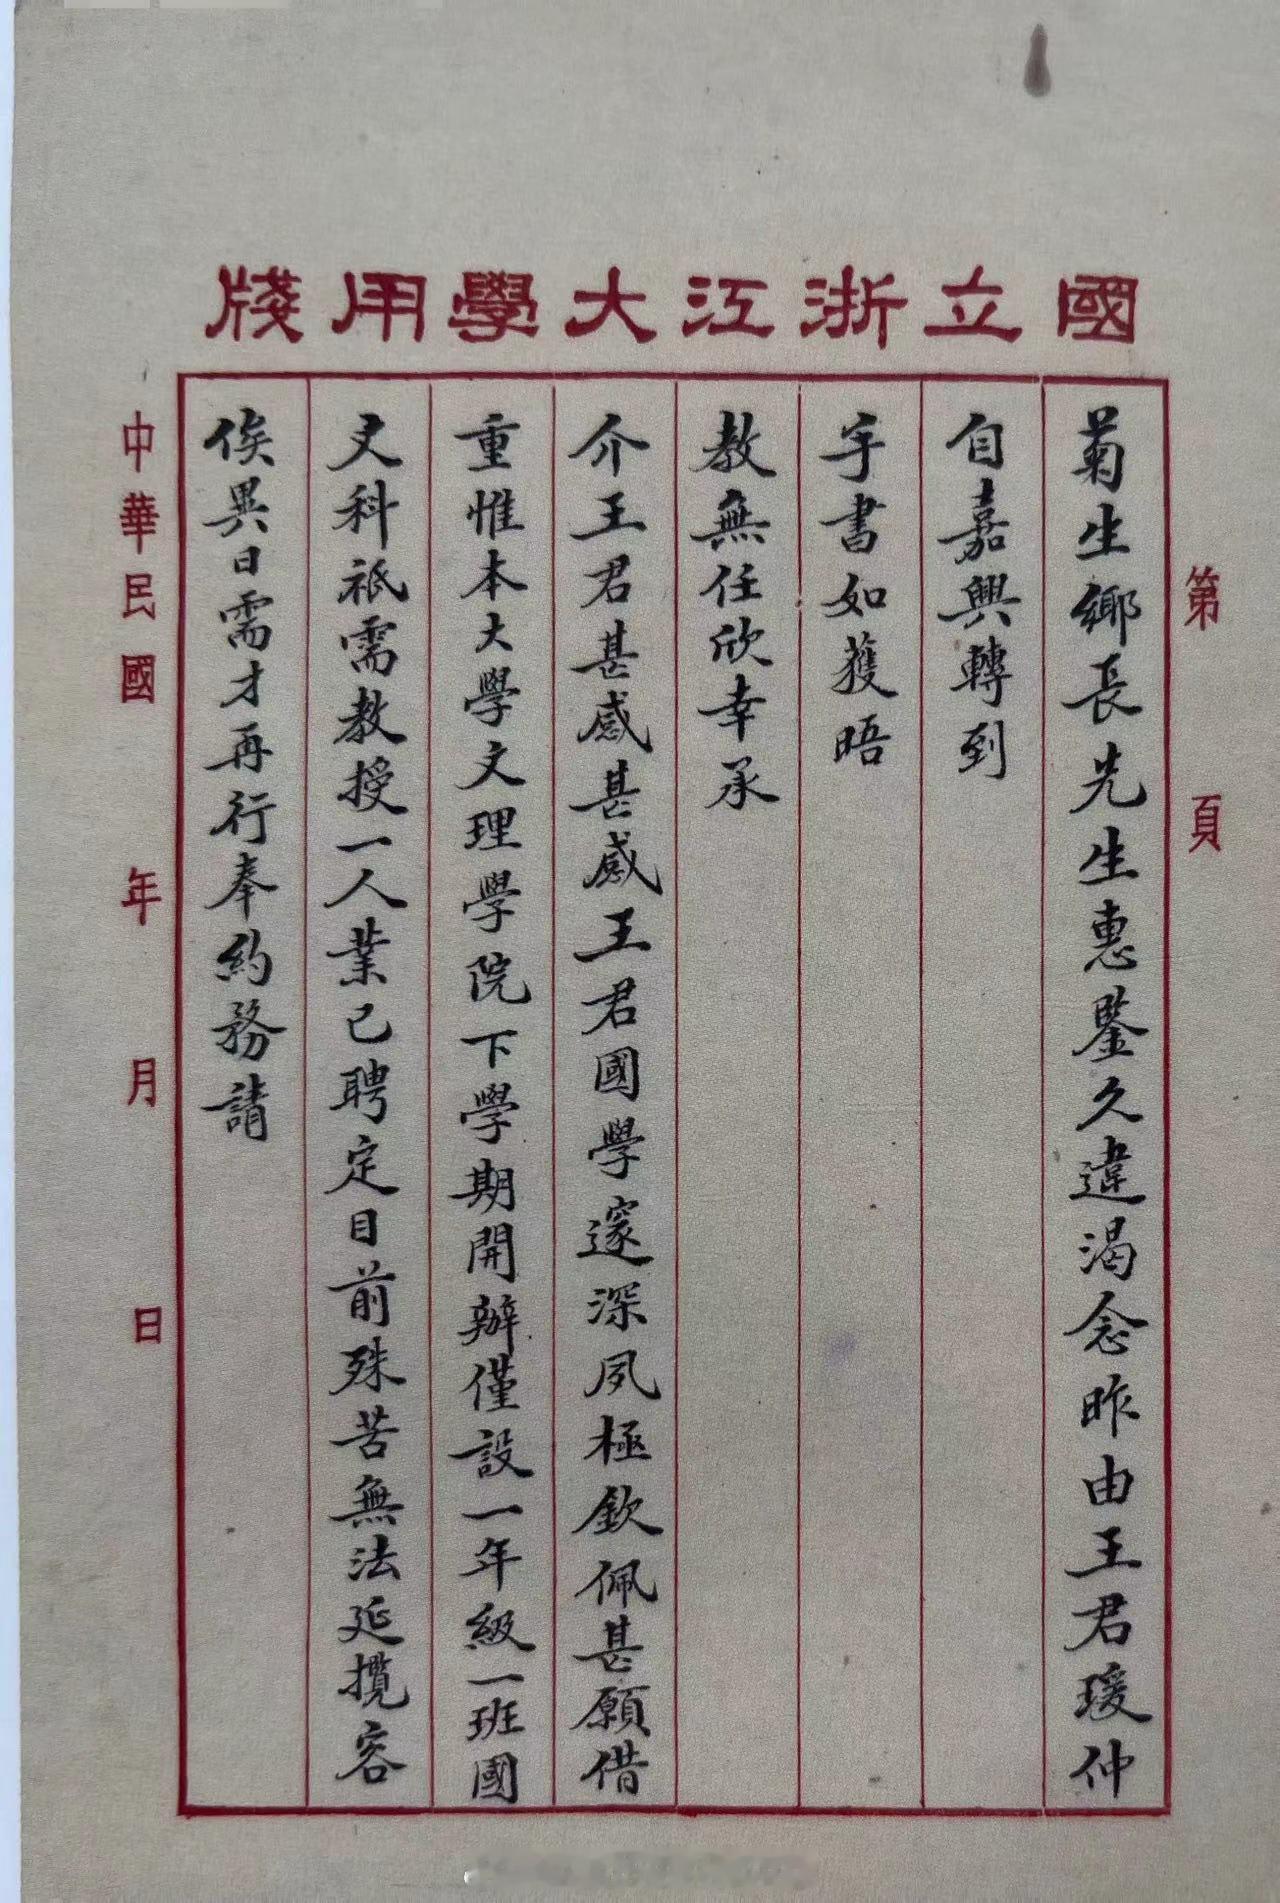 國立浙江大學用牋
第 頁
菊生鄉長先生惠鑒久違渴念昨由王君瑗仲
自嘉興轉到
手書如獲晤
教無任欣幸承
介王君甚感甚感王君國學邃深夙極欽佩甚願借
重惟本大學文理學院下學期開辦僅設一年級一班國
文科祇需教授一人業已聘定目前殊苦無法延攬容
俟異日需才再行奉約務請
中華民國 年 月 日